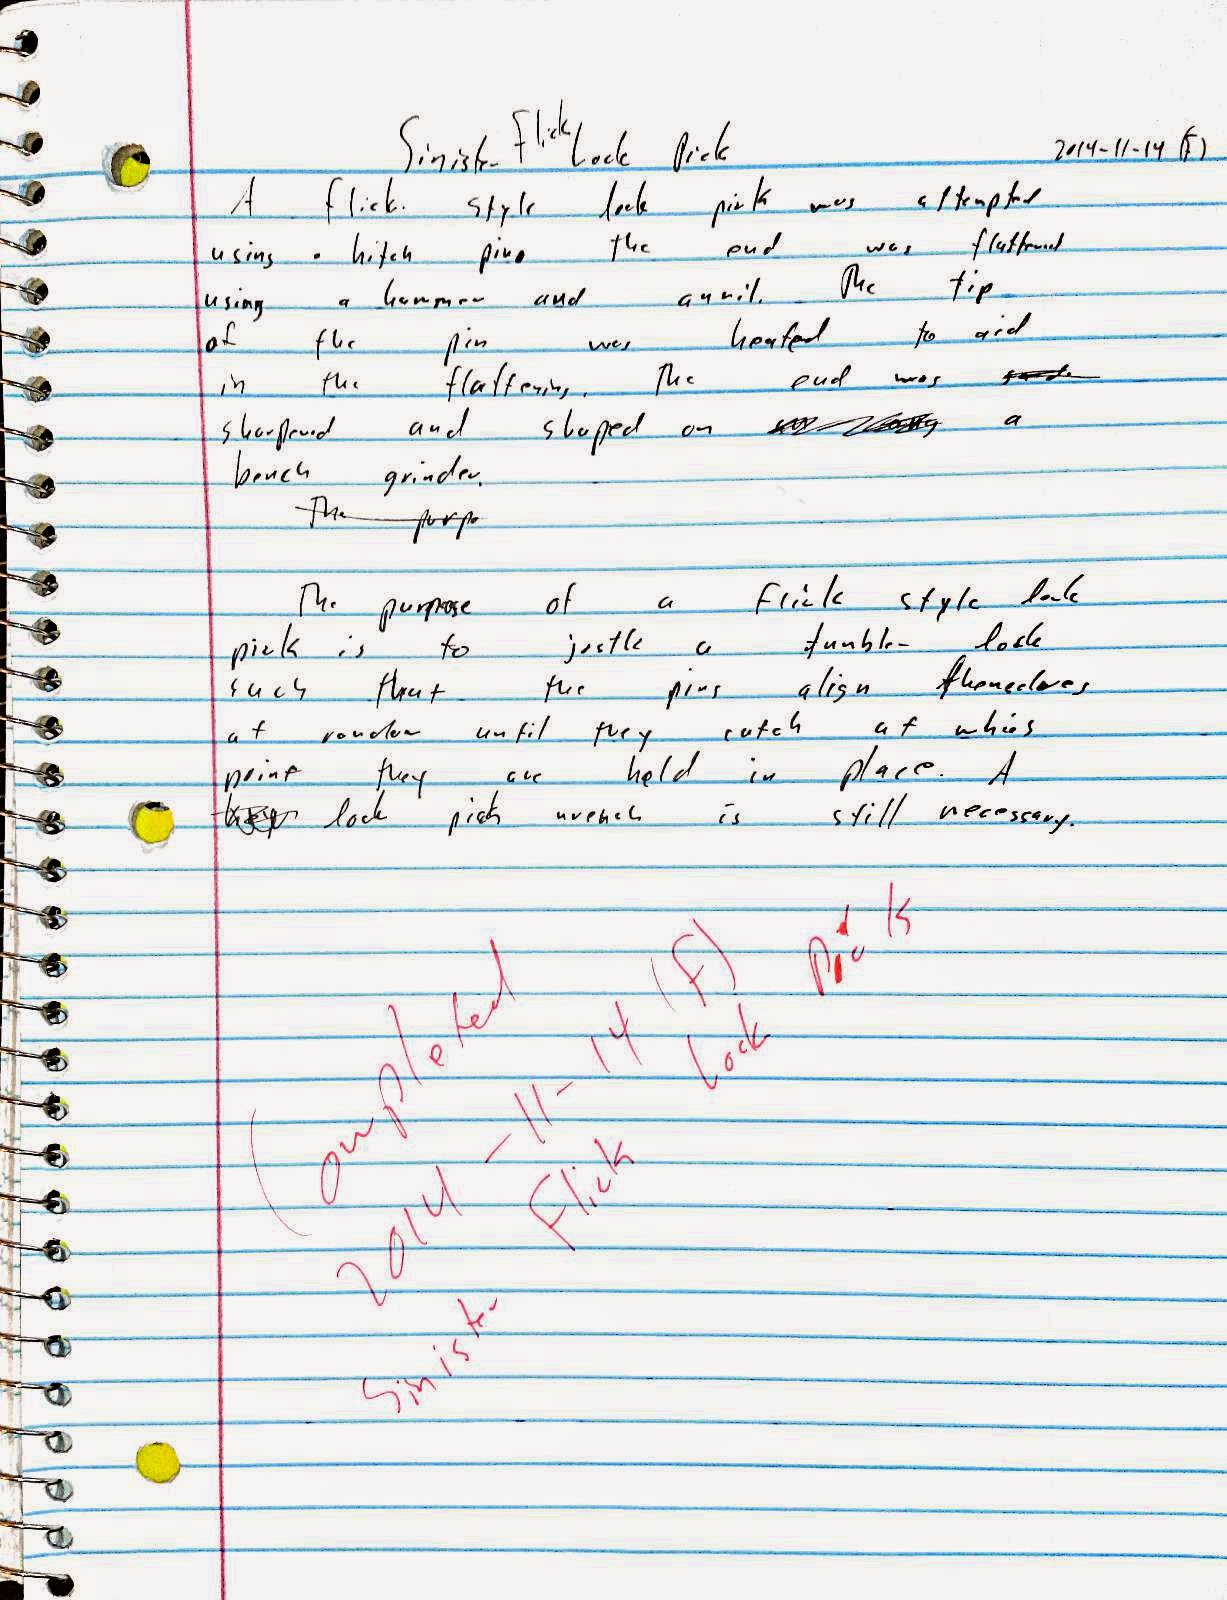 Sinister Flick Lock Pick 2014-11-14 (F)
A flick style lock pick was attempted
using a hitch pin. the end was flattened
using a hammer and anvil. The tip
of the pin was heated to aid
in the flattening. The end was
sharpened and shaped on a
bench grinder.
The purpo
The purpose of a Flick style lock
pick is to jostle a tumbler lock
such that the pins align themselves
at random until they catch at which
point they are held in place. A
lock pick wrench is still necessary.
Completed
2014-11-14 (F)
Sinister Flick Lock Pick